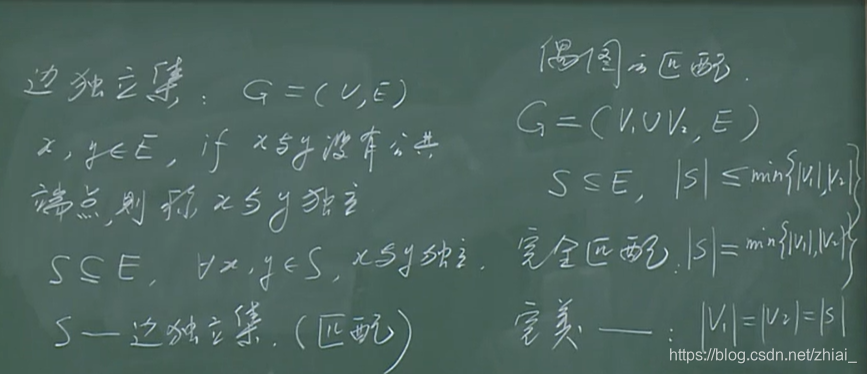 边独立集: G=(V,E)
x,y∈E, if x与y没有公共
端点,则称x与y独立
S⊆E, ∀x,y∈S, x与y独立.
S—边独立集.(匹配)
偶图的匹配.
G=(V₁∪V₂,E)
S⊆E, |S|≤min{|V₁|,|V₂|}
完全匹配:|S|=min{|V₁|,|V₂|}
完美——:|V₁|=|V₂|=|S|
https://blog.csdn.net/zhiai_